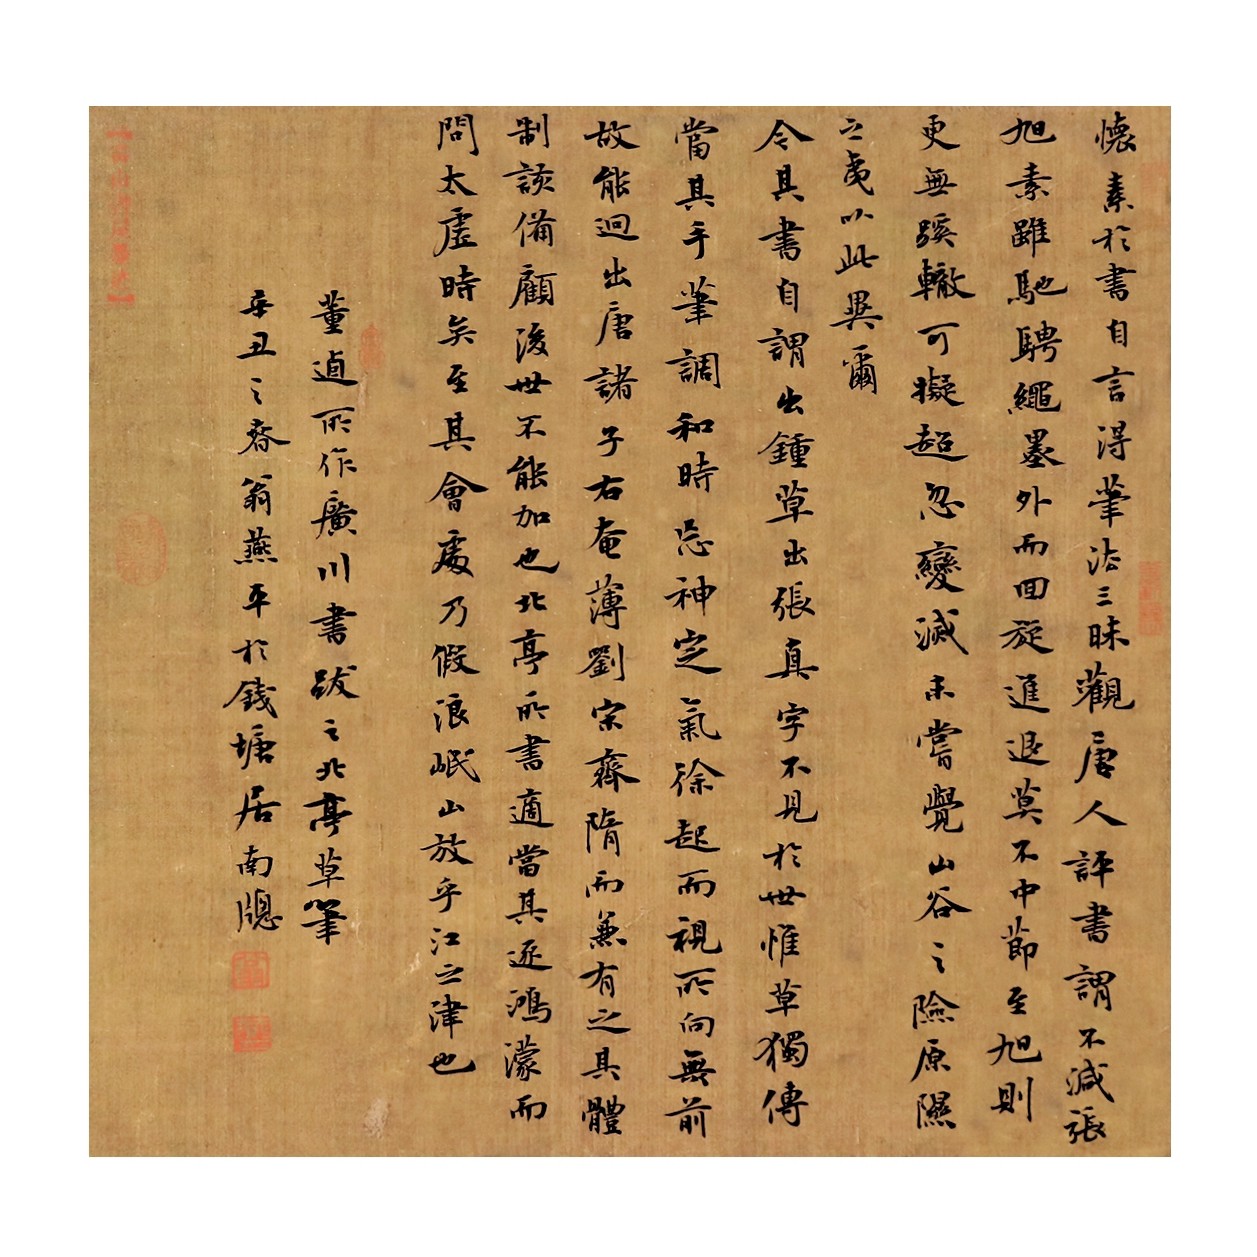 懷素於書自言得筆法三昧觀唐人評書謂不減張
旭素雖馳騁繩墨外而回旋進退莫不中節至旭則
更無蹊轍可擬超忽變滅未嘗覺山谷之險原隰
之夷以此異爾
令其書自謂出鍾草出張真字不見於世惟草獨傳
當其手筆調和時忘神定氣徐起而視所向無前
故能迥出唐諸子右奄薄劉宋齊隋而兼有之具體
制該備顧後世不能加也北亭所書適當其逐鴻濛而
問太虛時矣至其會處乃假浪岷山放乎江之津也
董逌所作廣川書跋之北亭草筆
辛丑之春翁燕平於錢塘居南牕